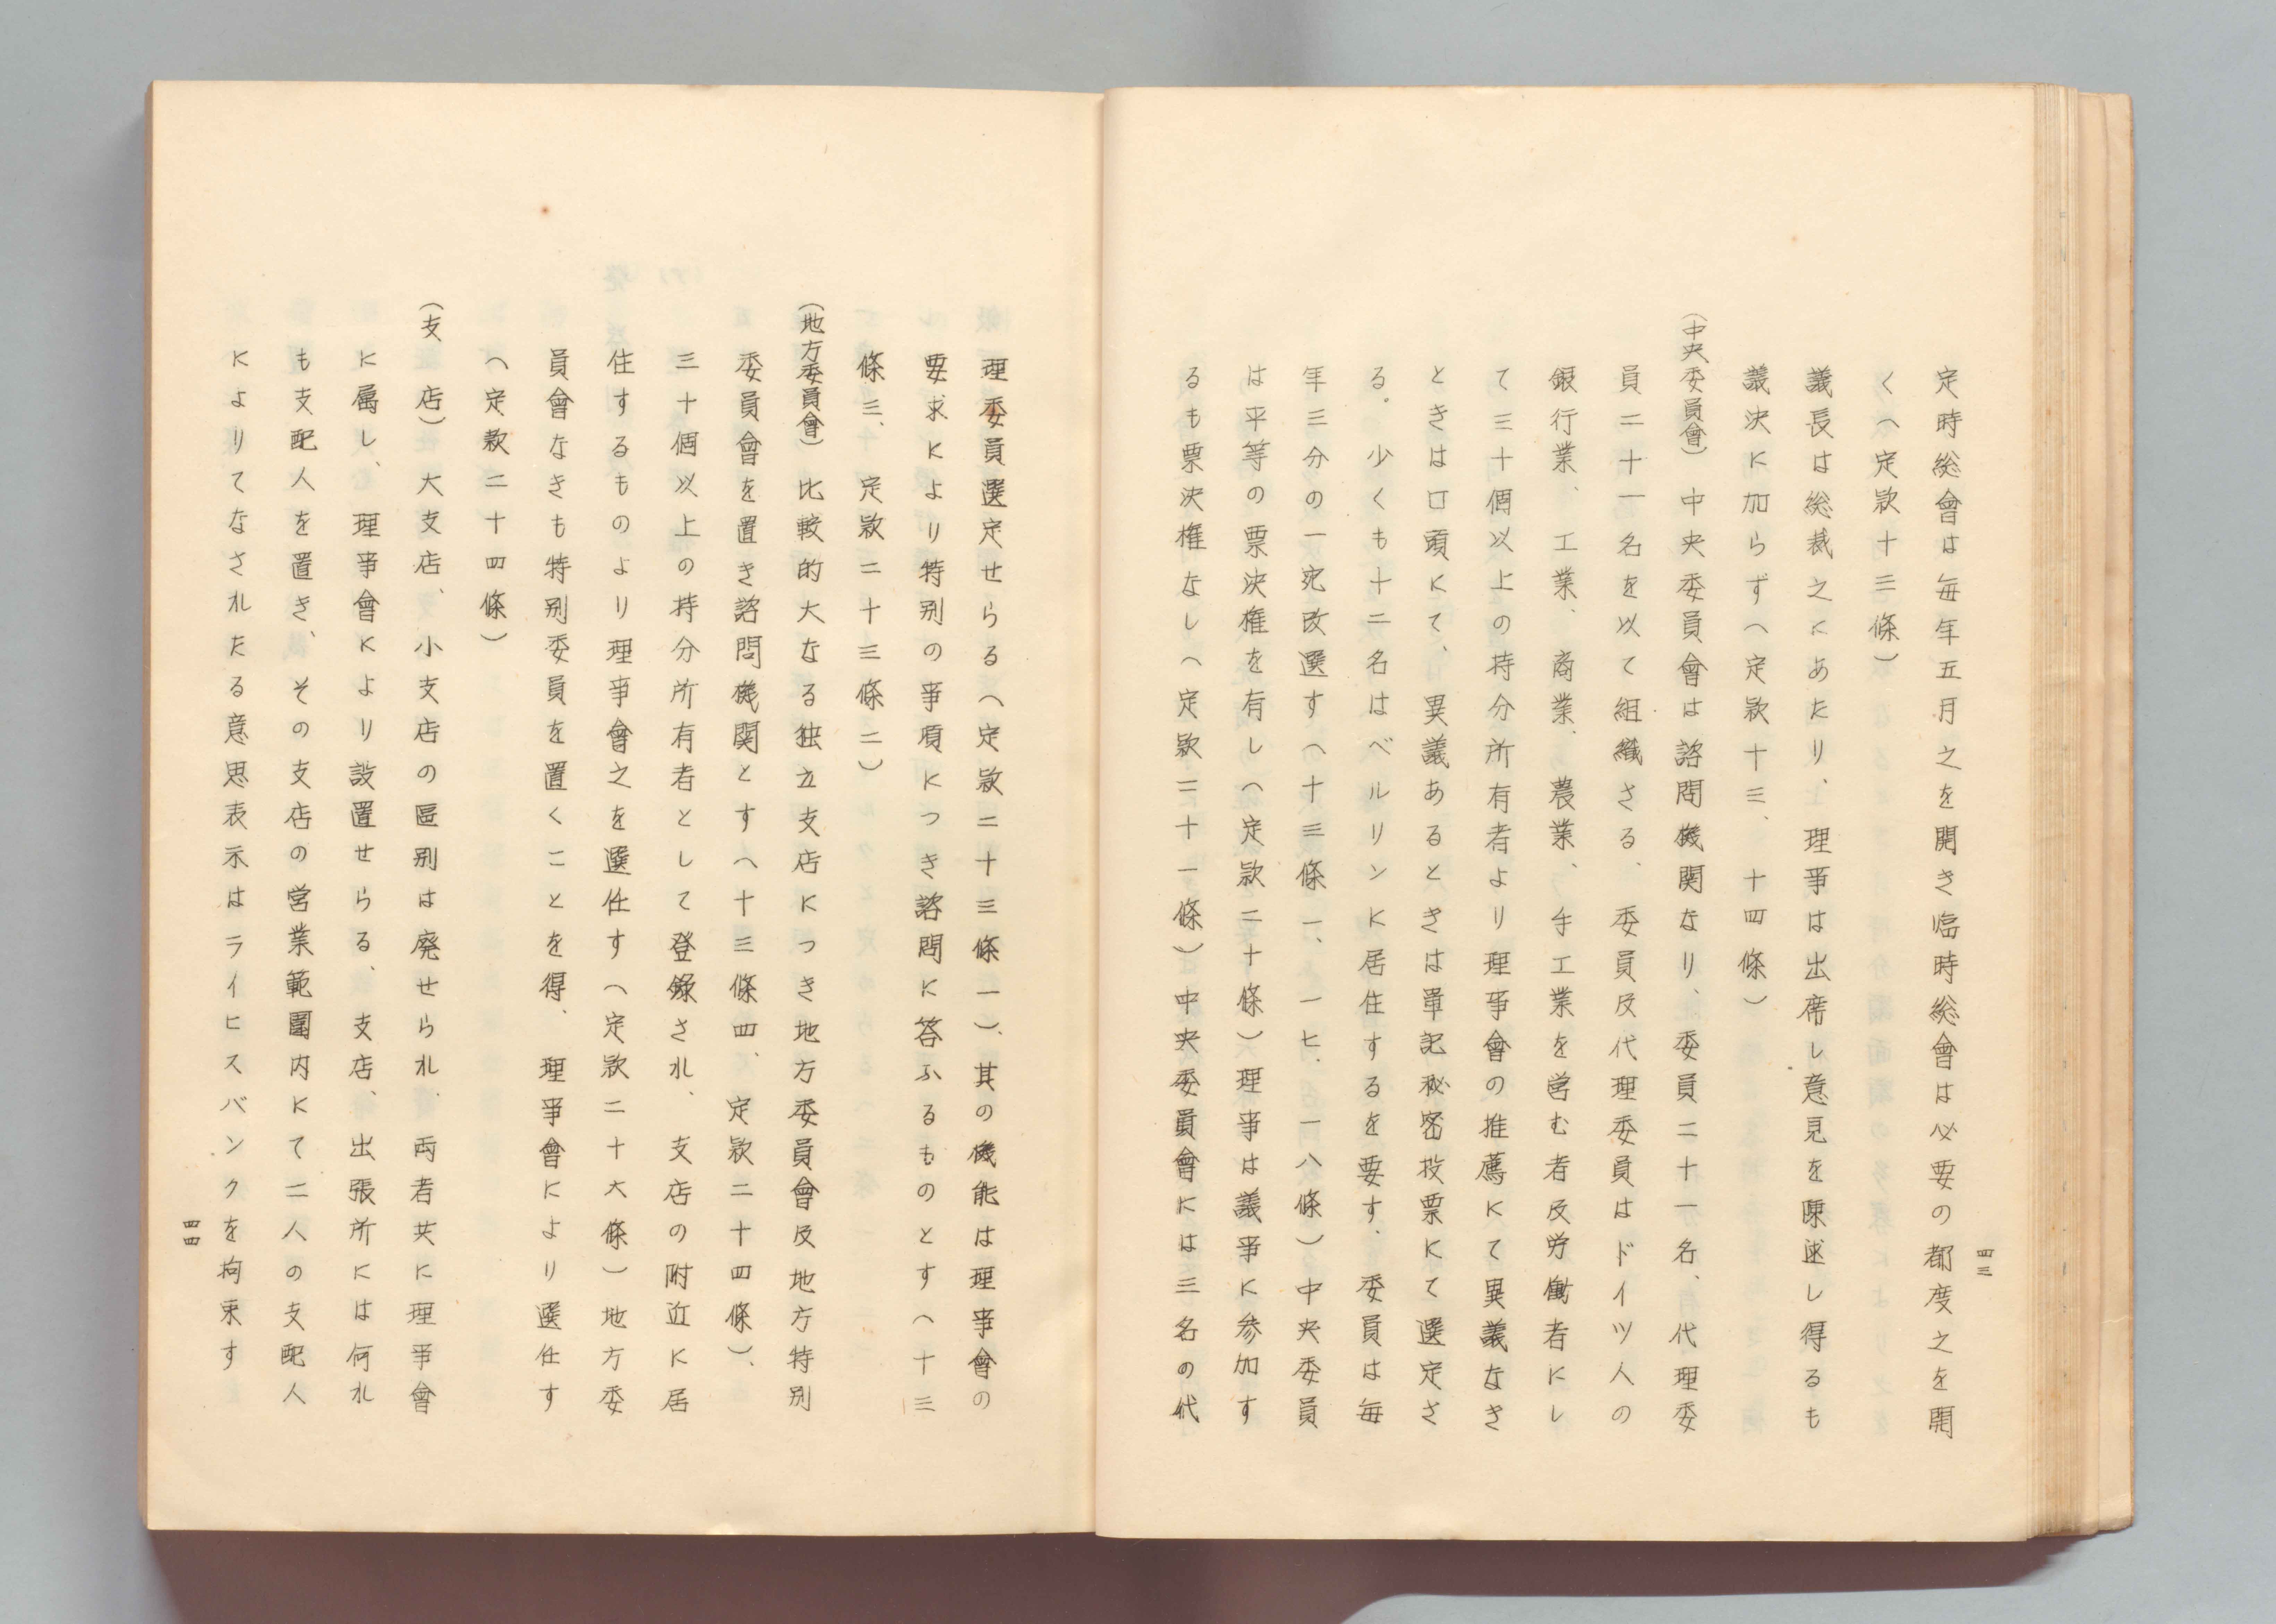 四三
定時総會は毎年五月之を開き臨時総會は必要の都度之を開
く（定款十三條）
議長は総裁之にあたり、理事は出席し意見を陳述し得るも
議決に加らず（定款十三、十四條）
（中央委員會）中央委員會は諮問機関なり、委員二十一名、代理委
員二十一名を以て組織さる、委員及代理委員はドイツ人の
銀行業、工業、商業、農業、手工業を営む者及労働者にし
て三十個以上の持分所有者より理事會の推薦にて異議なき
ときは口頭にて、異議あるときは單記秘密投票にて選定さ
る。少くも十二名はベルリンに居住するを要す、委員は毎
年三分の一宛改選す（十三條一、一七、一八條）中央委員
は平等の票決権を有し（定款二十條）理事は議事に参加す
るも票決権なし（定款二十一條）中央委員會には三名の代
理委員選定せらる（定款二十三條一）、其の機能は理事會の
要求により特別の事項につき諮問に答ふるものとす（十三
條三、定款二十三條二）
（地方委員會）比較的大なる独立支店につき地方委員會及地方特別
委員會を置き諮問機関とす（十三條四、定款二十四條）、
三十個以上の持分所有者として登録され、支店の附近に居
住するものより理事會之を選任す（定款二十六條）地方委
員會なきも特別委員を置くことを得、理事會により選任す
（定款二十四條）
（支　店）大支店、小支店の區別は廃せられ、両者共に理事會
に属し、理事會により設置せらる、支店、出張所には何れ
も支配人を置き、その支店の営業範圍内にて二人の支配人
によりてなされたる意思表示はライヒスバンクを拘束す
四四